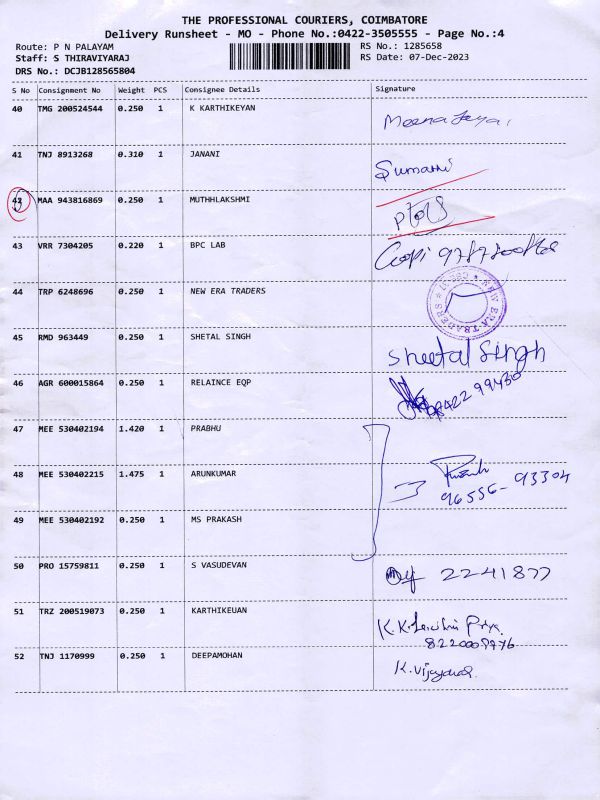 THE PROFESSIONAL COURIERS, COIMBATORE
Delivery Runsheet - MO - Phone No.:0422-3505555 - Page No.:4
Route: P N PALAYAM RS No.: 1285658
Staff: S THIRAVIYARAJ RS Date: 07-Dec-2023
DRS No.: DCJB128565804
S No Consignment No Weight PCS Consignee Details Signature
40 TMG 200524544 0.250 1 K KARTHIKEYAN
Meena
41 TNJ 8913268 0.310 1 JANANI
Sumathi
42 MAA 943816869 0.250 1 MUTHHLAKSHMI
43 VRR 7304205 0.220 1 BPC LAB
Gopi
44 TRP 6248696 0.250 1 NEW ERA TRADERS
ERA TRADERS
45 RMD 963449 0.250 1 SHETAL SINGH
Sheetal Singh
46 AGR 600015864 0.250 1 RELAINCE EQP
47 MEE 530402194 1.420 1 PRABHU
48 MEE 530402215 1.475 1 ARUNKUMAR
96556-93304
49 MEE 530402192 0.250 1 MS PRAKASH
50 PRO 15759811 0.250 1 S VASUDEVAN
2241877
51 TRZ 200519073 0.250 1 KARTHIKEUAN
K.K. Priya
52 TNJ 1170999 0.250 1 DEEPAMOHAN